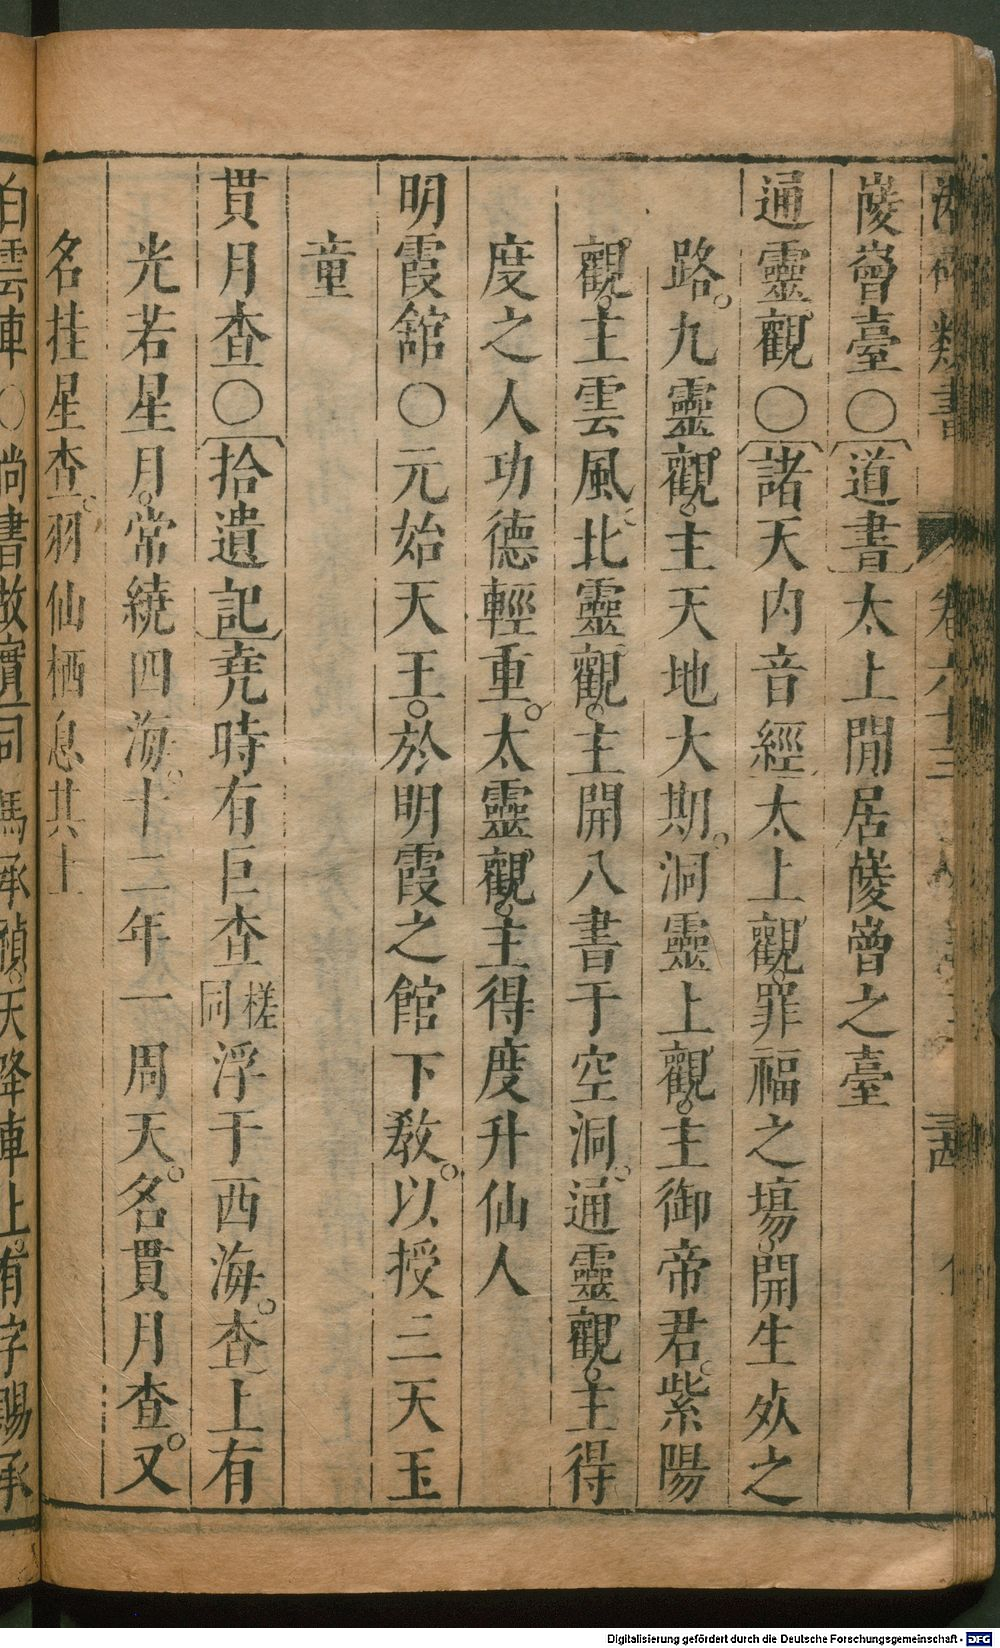 類書 卷六十三
崚嶒臺○道書太上閒居崚嶒之臺
通靈觀○諸天内音經太上觀罪福之塲開生死之
路九靈觀主天地大期洞靈上觀主御帝君紫陽
觀主雲風北靈觀主開八書于空洞通靈觀主得
度之人功德輕重太靈觀主得度升仙人
明霞舘○元始天王於明霞之館下敎以授三天玉
童
貫月查○拾遺記堯時有巨查槎同浮于西海查上有
光若星月常繞四海十二年一周天名貫月查又
名挂星查羽仙栖息其上
白雲車○尚書故實司馬承禎天降車上有字賜承
Digitalisierung gefördert durch die Deutsche Forschungsgemeinschaft - DFG